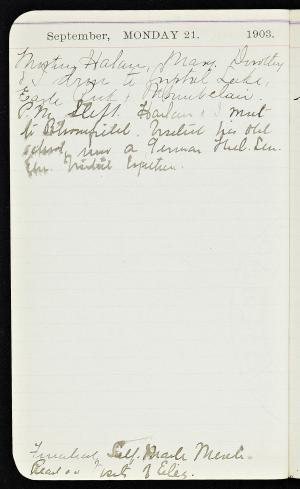 September, MONDAY 21. 1903.
Morning Harlan, Mary, Dorothy
& I drove to Crystal Lake,
Eagle Rock & Montclair.
P.M. Slept. Harlan & I went
to Bloomfield. Visited his old
school, now a German Theo. Sem.
Eve. Visited together.
Finished Self. Made Merch.
Read on Visits of Eliz.